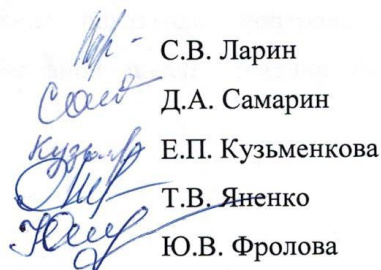 С.В. Ларин
Д.А. Самарин
Е.П. Кузьменкова
Т.В. Яненко
Ю.В. Фролова